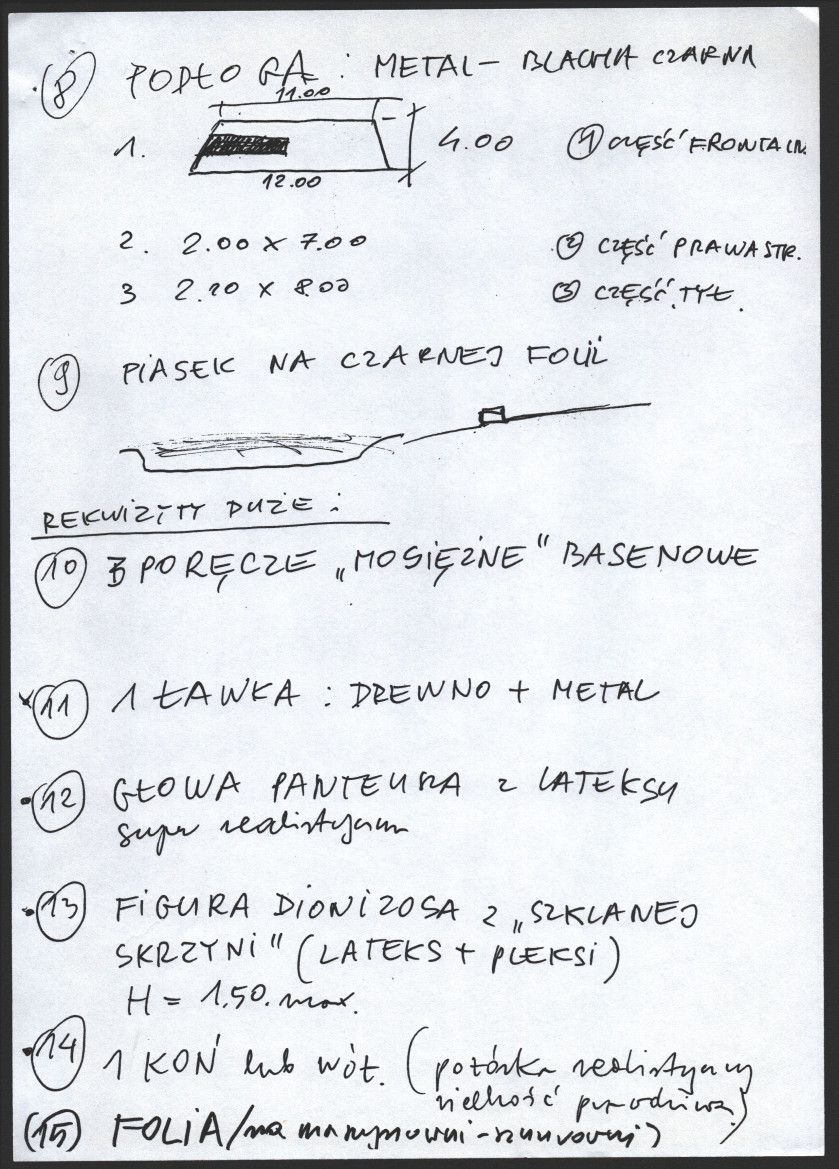 8 PODŁOGA : METAL – BLACHA CZARNA
11.00
1. 4.00 1 CZĘŚĆ FRONTALN.
12.00
2. 2.00 x 7.00 2 CZĘŚĆ PRAWA STR.
3 2.20 x 8.00 3 CZĘŚĆ TYŁ.
9 PIASEK NA CZARNEJ FOLII
REKWIZYTY DUŻE :
10 3 PORĘCZE „MOSIĘŻNE" BASENOWE
11 1 ŁAWKA : DREWNO + METAL
12 GŁOWA PANTEURA z LATEKSU
super realistyczna
13 FIGURA DIONIZOSA z „SZKLANEJ
SKRZYNI" (LATEKS + PLEKSI)
H = 1.50. max.
14 1 KOŃ lub wół. (potówka realistyczny
wielkość prawdziwa)
(15) FOLIA/na